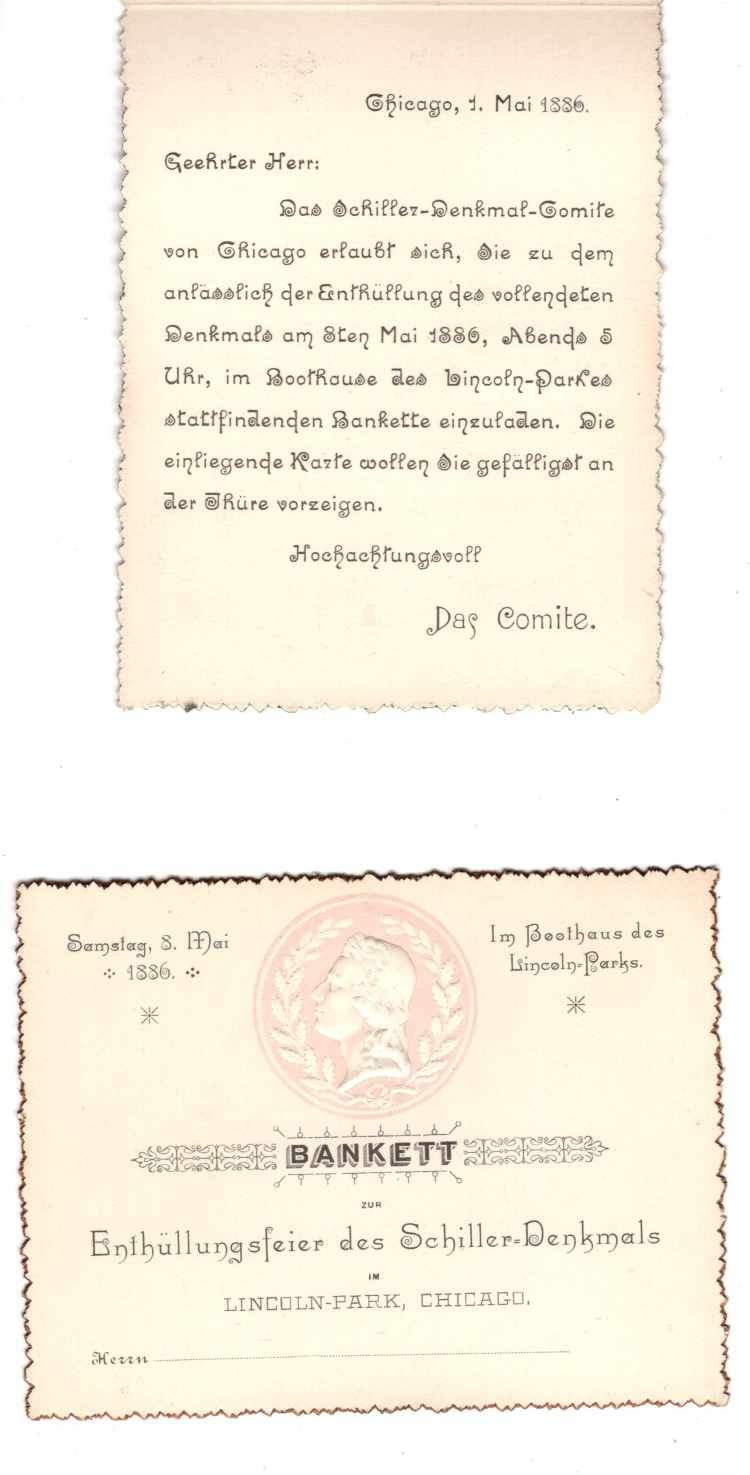 Chicago, 1. Mai 1886.
Geehrter Herr:
Das Schiller-Denkmal-Comite
von Chicago erlaubt sich, Sie zu dem
anlässlich der Enthüllung des vollendeten
Denkmals am 8ten Mai 1886, Abends 5
Uhr, im Boothause des Lincoln-Parkes
stattfindenden Bankette einzuladen. Die
einliegende Karte wollen Sie gefälligst an
der Thüre vorzeigen.
Hochachtungsvoll
Das Comite.
Samstag, 8. Mai
1886.
Im Boothaus des
Lincoln-Parks.
BANKETT
ZUR
Enthüllungsfeier des Schiller-Denkmals
IM
LINCOLN-PARK, CHICAGO.
Herrn